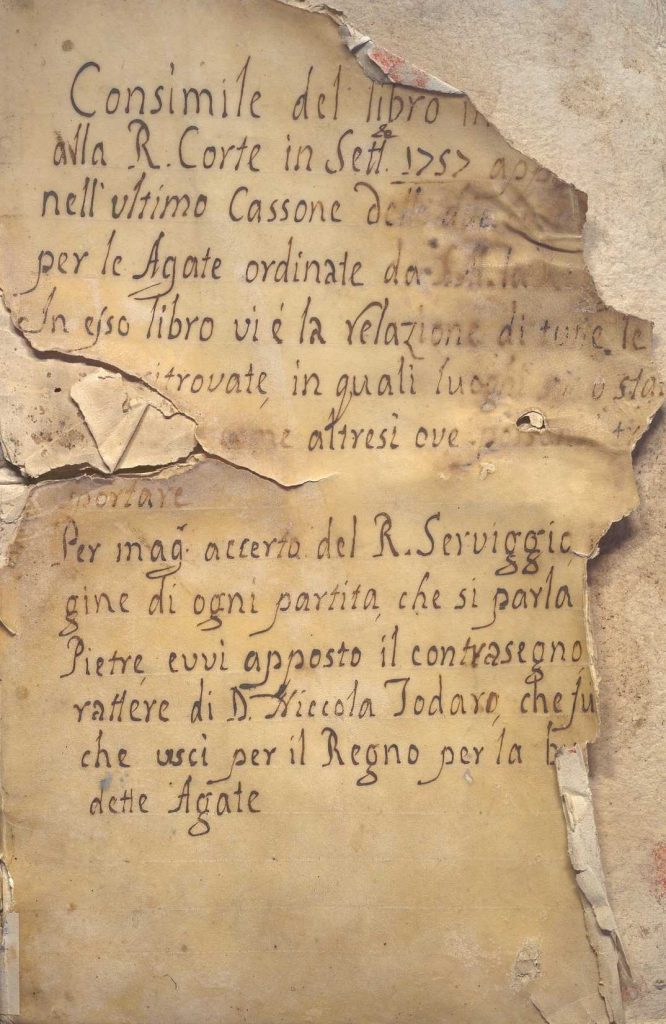 Consimile del libro in
alla R. Corte in Sett.bre 1757
nell'ultimo Cassone delle due
per le Agate ordinate da S.M. la
In esso libro vi é la relazione di tutte le
ritrovate, in quali luoghi sta
come altresì ove
portare
Per mag.r accerto del R. Serviggio
gine di ogni partita, che si parla
Pietre, evvi apposto il contrasegno
rattere di D. Niccola Todaro, che fu
che uscì per il Regno per la
dette Agate